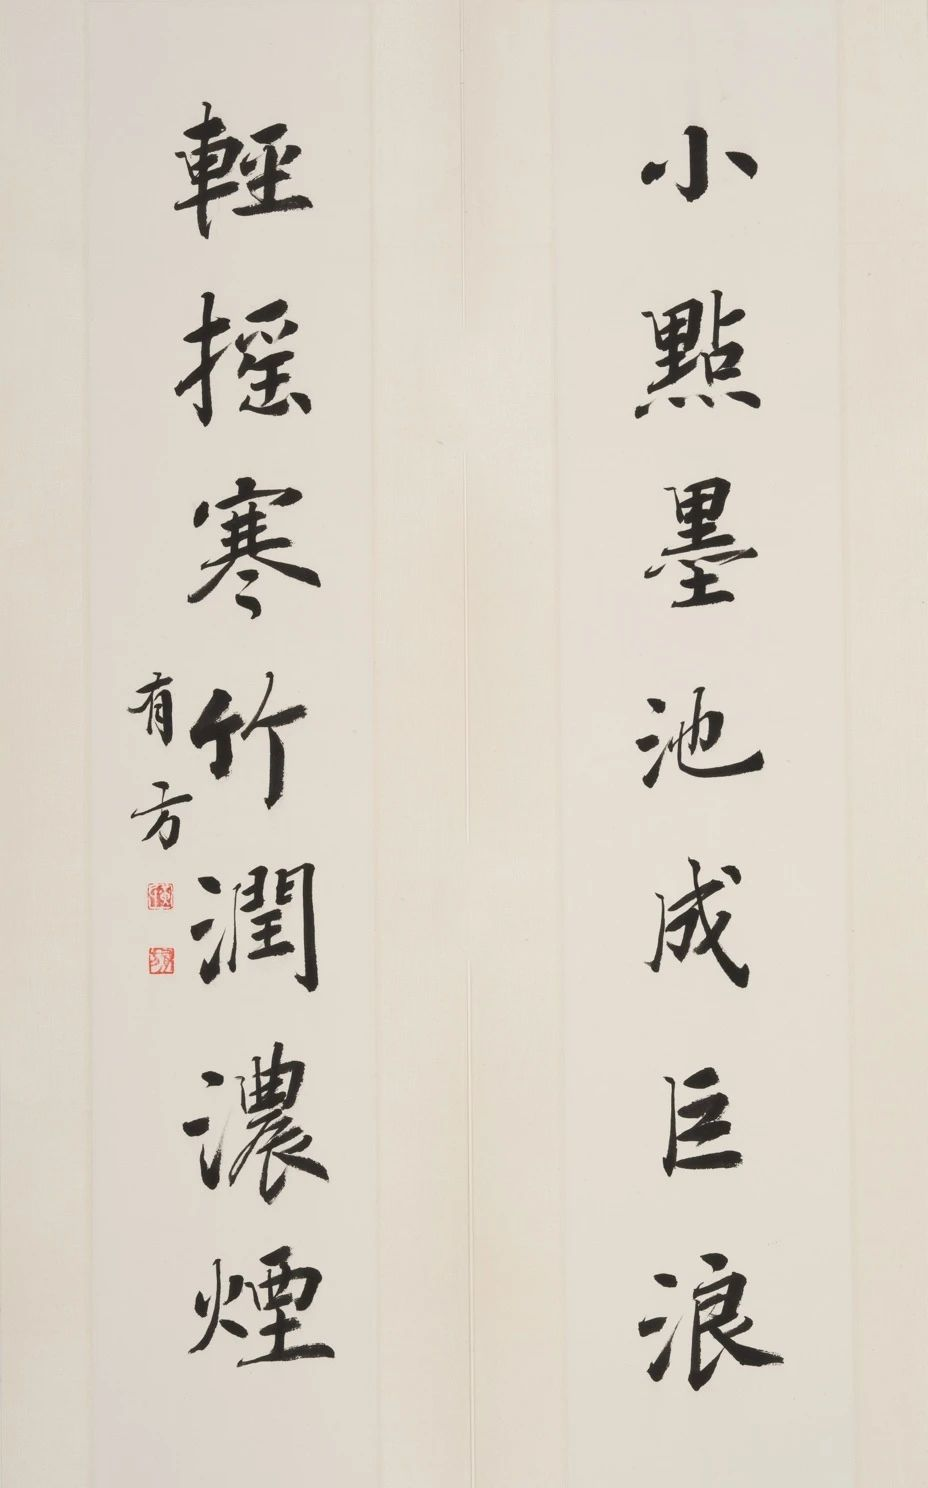 小點墨池成巨浪
輕搖寒竹潤濃煙
有方